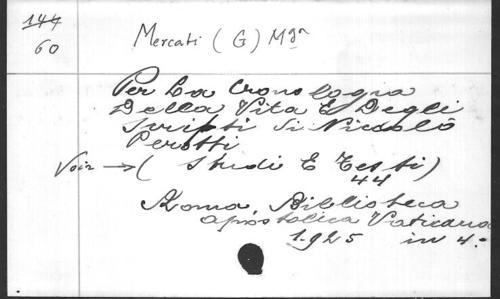 144
60
Mercati (G) Mgr
Per La Cronologia
Della Vita E Degli
Scritti Di Niccolò
Perotti
Voir → ( Studi E Testi)
44
Roma, Biblioteca
apostolica Vaticana
1925 in 4°